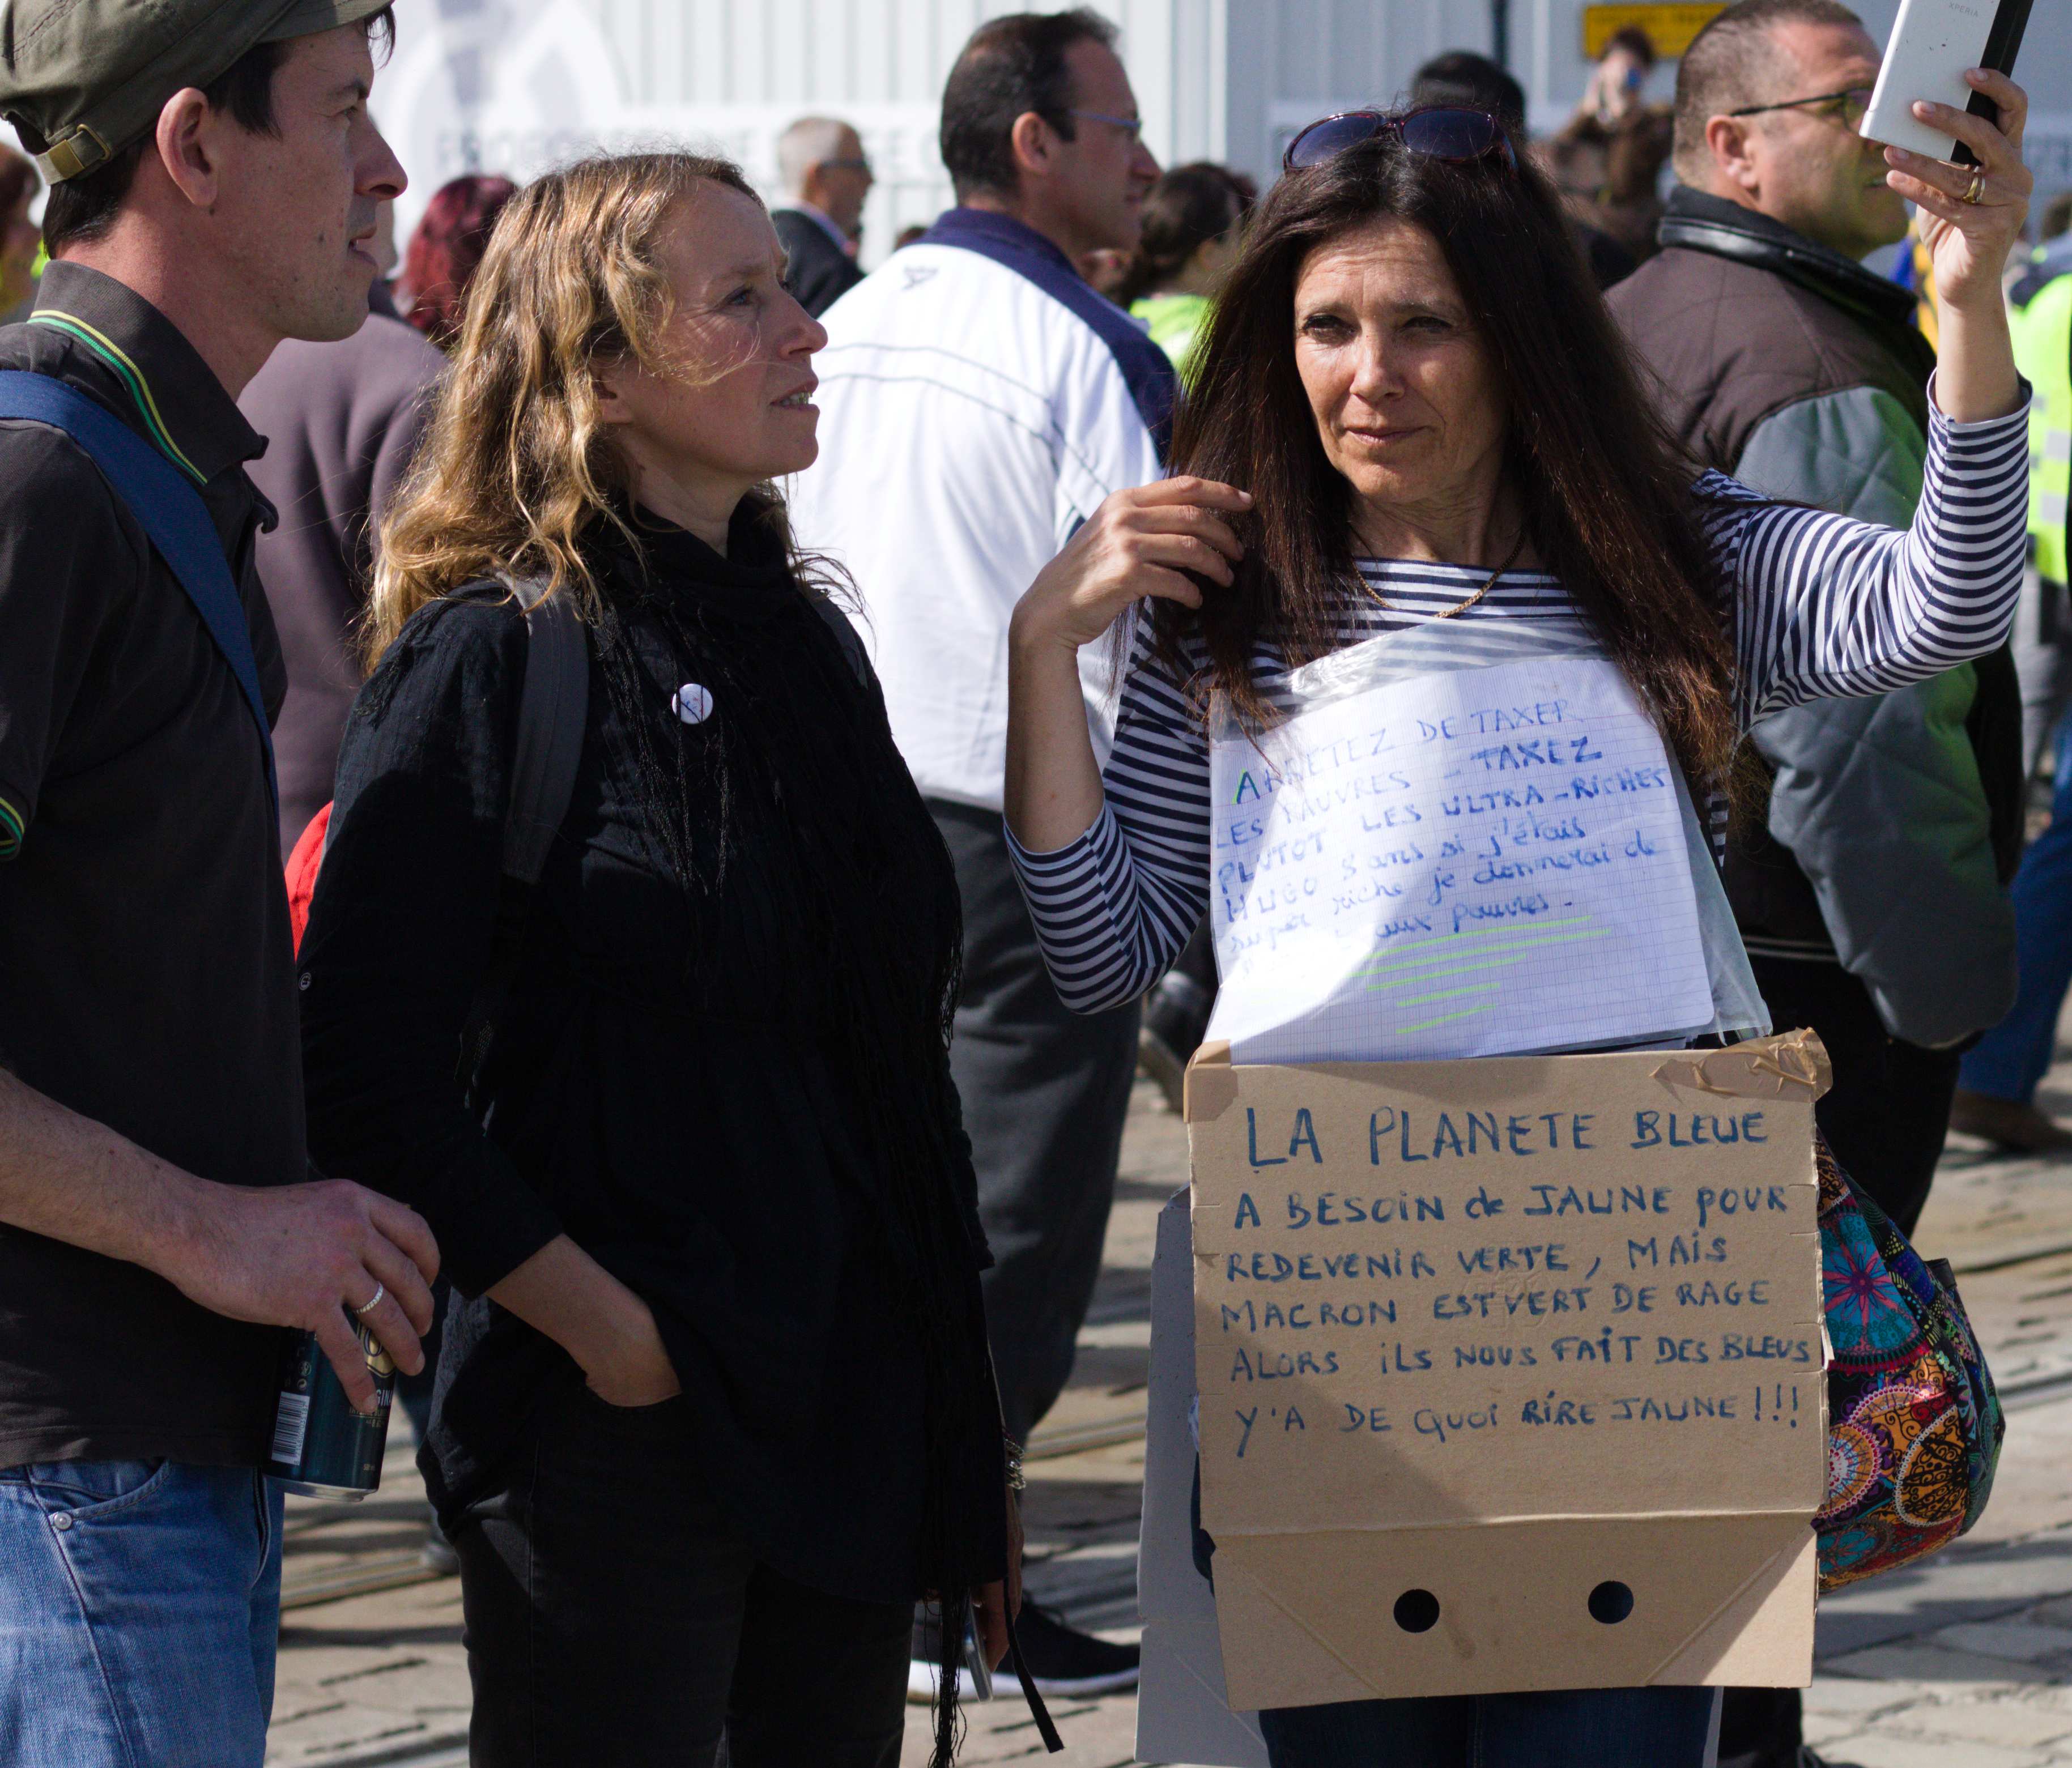 XPERIA
ARRETEZ DE TAXER
LES PAUVRES - TAXEZ
PLUTOT LES ULTRA-RICHES
HUGO 8 ans si j'étais
super riche je donnerai de
aux pauvres.
LA PLANETE BLEUE
A BESOIN de JAUNE POUR
REDEVENIR VERTE, MAIS
MACRON EST VERT DE RAGE
ALORS ILS NOUS FAIT DES BLEUS
Y'A DE QUOI RIRE JAUNE !!!